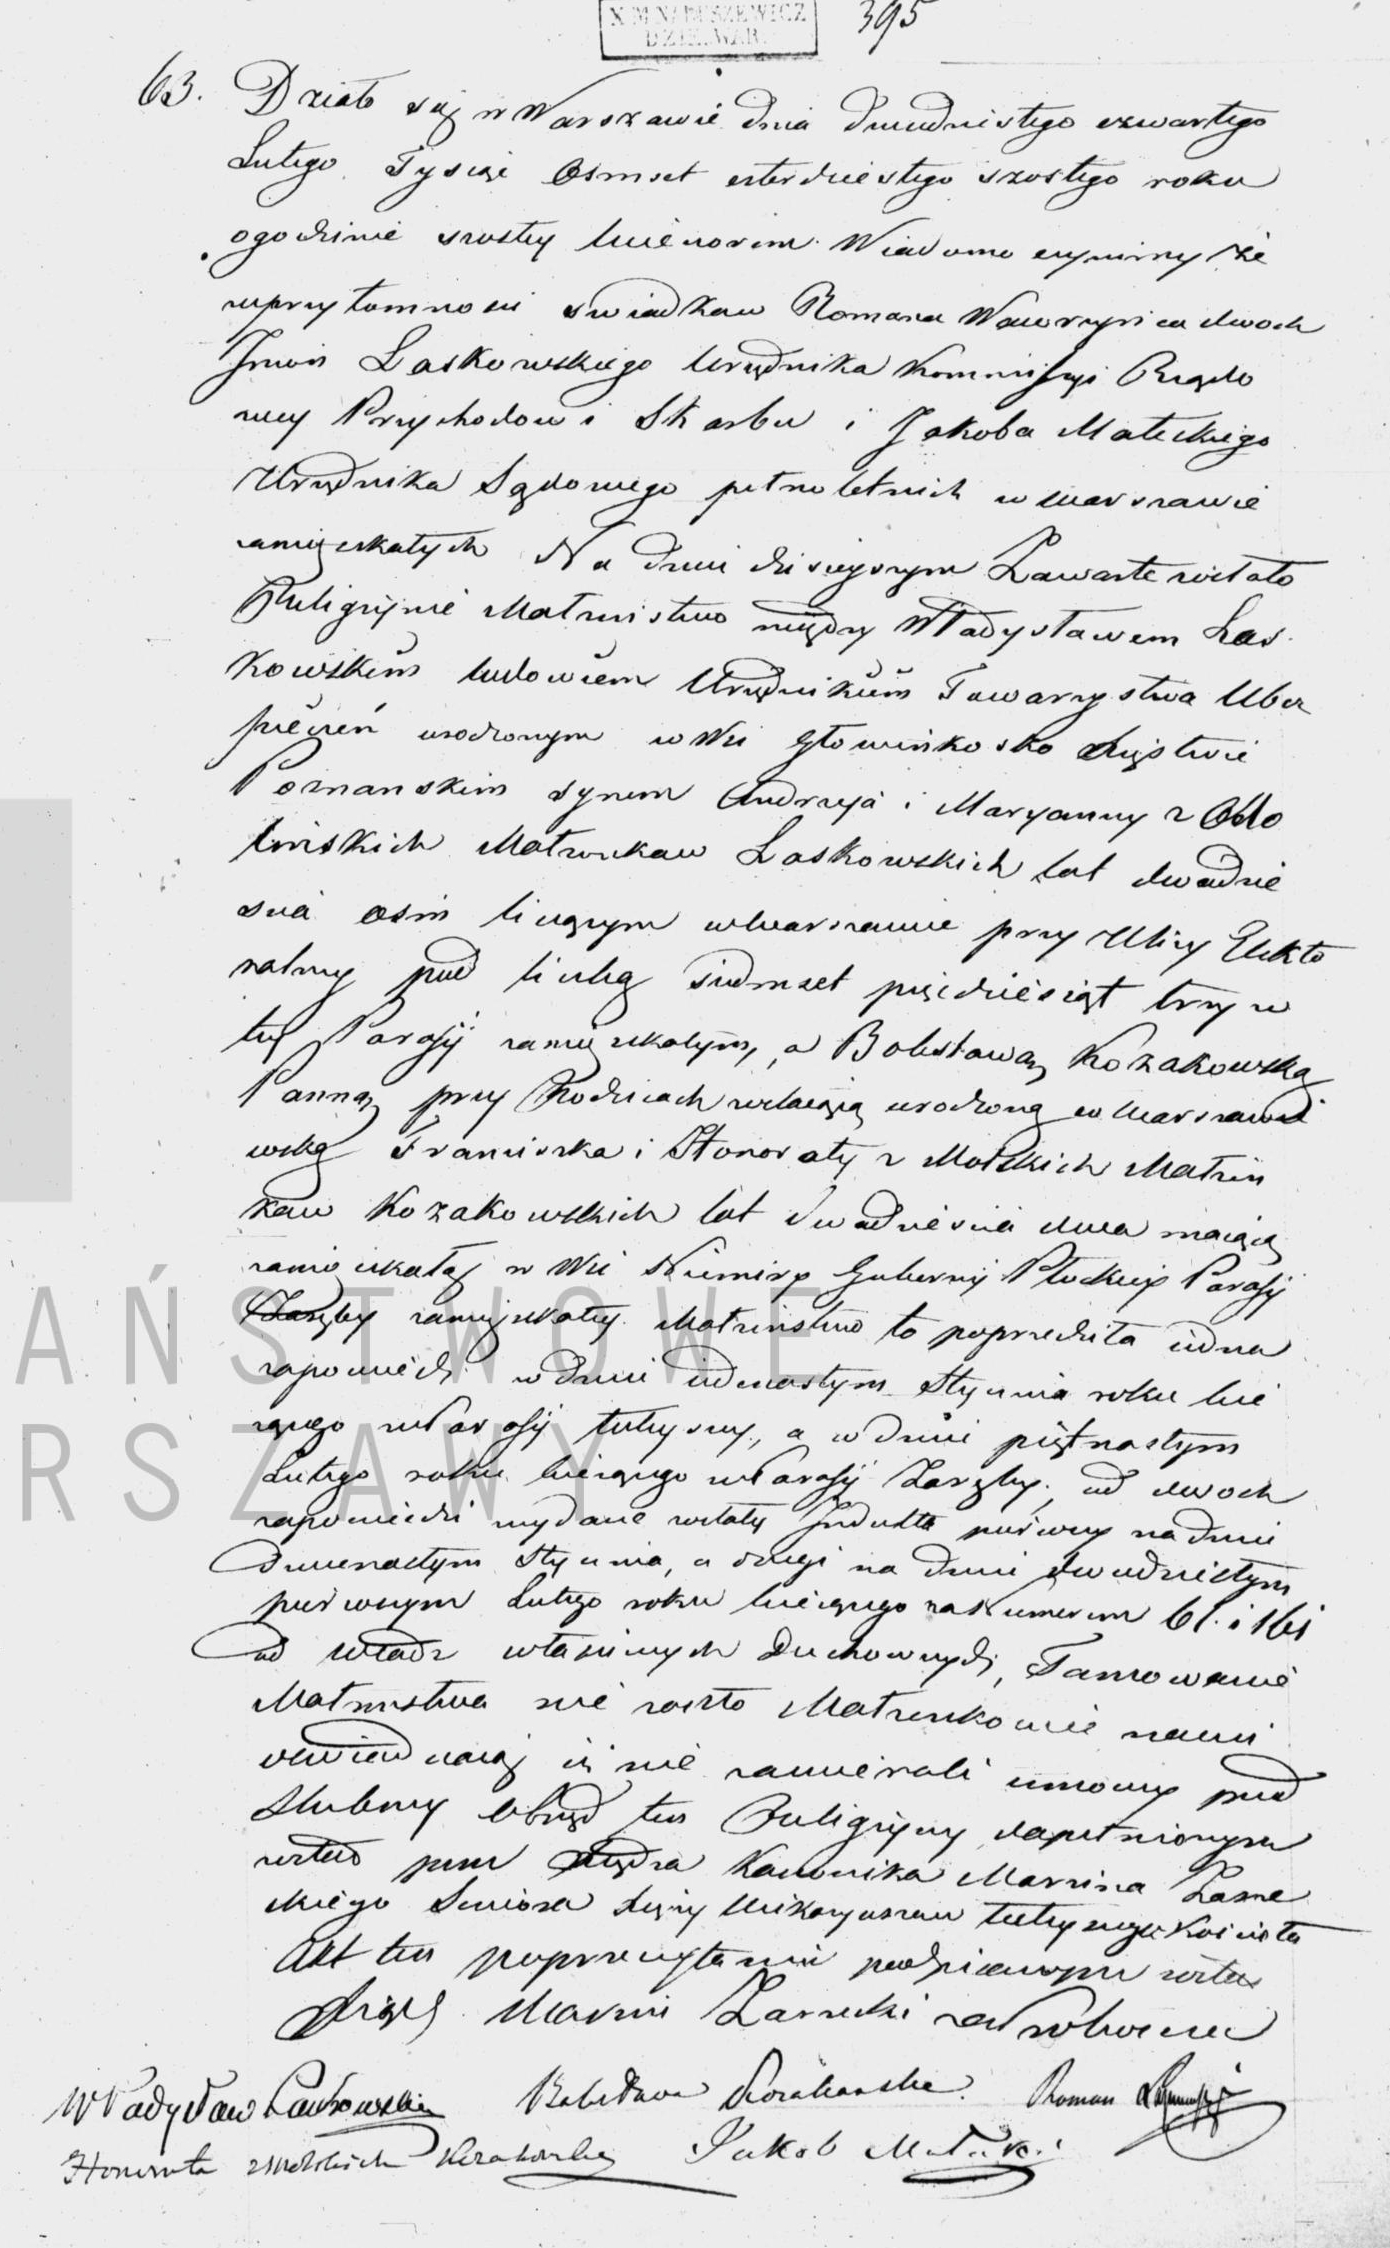 X. M. NABUSZEWICZ
DZIEK. WAR.
395
63. Działo się w Warszawie dnia dwudziestego czwartego
Lutego Tysiąc Osmset czterdziestego szostego roku
ogodzinie szostey wieczorem. Wiadomo czyniemy że
wprzytomnosci swiadkow Romana Wawrzyńca dwoch
Imion Laskowskiego Urzędnika Kommissyi Rządo
wey Przychodow i Skarbu i Jakoba Małeckiego
Urzędnika Sądowego pełnoletnich w Warszawie
zamięszkałych Na dniu dzisieyszym Zawarte zostało
Religijnie Małżeństwo między Władysławem Las
kowskim wdowcem Urzędnikiem Towarzystwa Ubez
pieczeń urodzonym w Wsi Xięstwie
Poznanskim synem Andrzeja i Maryanny z
Małżonkow Laskowskich lat dwadzie
scia osm liczącym w Warszawie przy Ulicy Elekto
ralney pod liczbą siedmset pięcdziesiąt trzy w
tey Parafij zamięszkałym, a Bolesławą Kozakowską
Panną przy Rodzicach zostaiącą urodzoną w Warszawie
corką Franciszka i Honoraty z Małżon
kow Kozakowskich lat dwadziescia dwa maiącą
zamięszkałą w Wsi Gubernij Płockiey Parafij
zamięszkałey Małżeństwo to poprzedziła iedna
zapowiedz w dniu iedenastym Stycznia roku bie
żącego w Parafij tuteyszey, a w dniu piętnastym
Lutego roku bieżącego w Parafij od dwoch
zapowiedzi wydane zostały Indulta pierwszy na dniu
dwunastym Stycznia, a drugi na dniu dwudziestym
pierwszym Lutego roku bieżącego za Numerem 61. i 161
od Władz własciwych Duchownych, Tamowanie
Małżeństwa nie zaszło Małżonkowie nowi
oswiadczaią iż nie zawierali umowy przed
slubney Obrzęd ten Religijny dopełnionym
został przez Xiędza Kanonika Marcina Zarze
ckiego Seniora Xięży Wikaryuszow tuteyszego Kościoła
Akt ten po przeczytaniu podpisanym został
Xiądz Marcin Zarzecki
Władysław Laskowski Bolesława Kozakowska. Roman
Honorata Kozakowska Jakob Małecki
PAŃSTWOWE
WARSZAWY